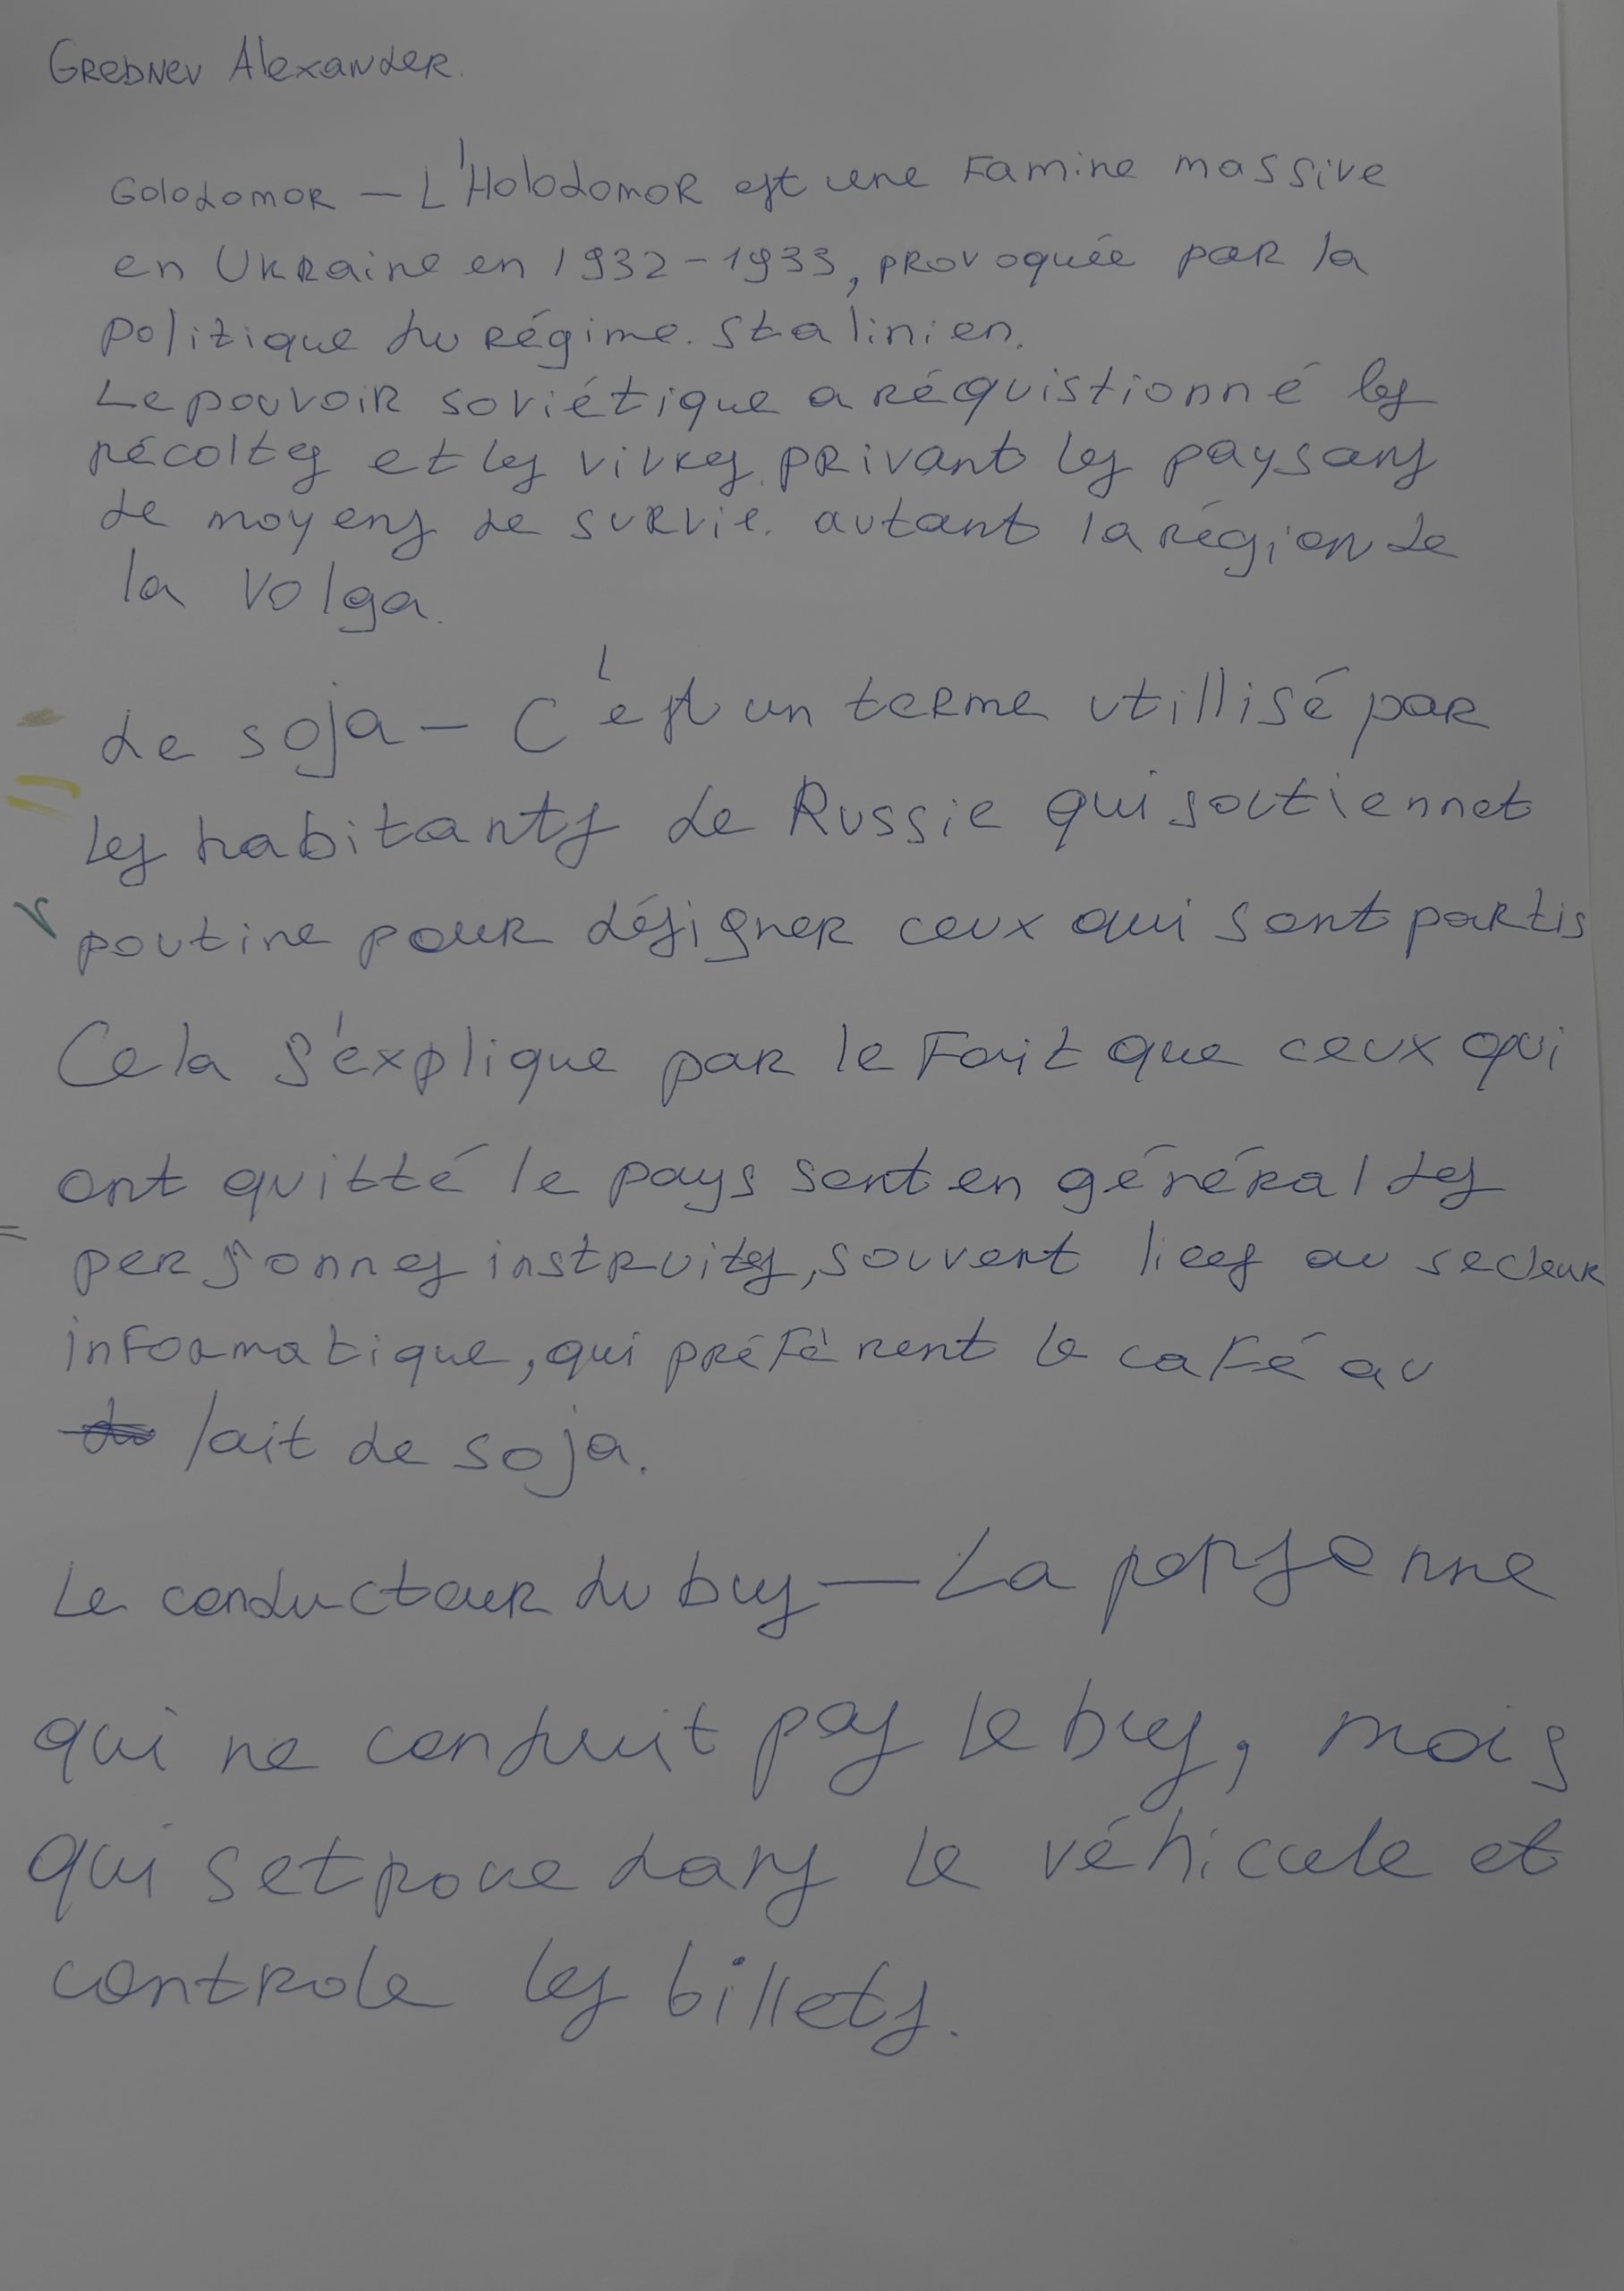 Grebnev Alexander.
Golodomor – L'Holodomor est une famine massive
en Ukraine en 1932-1933, provoquée par la
politique du régime. stalinien.
Le pouvoir soviétique a réquistionné les
récoltes et les vivres, privant les paysans
de moyens de survie. autant la région de
la Volga.
de soja – C'est un terme utillisé par
les habitants de Russie qui soutiennet
poutine pour désigner ceux qui sont partis
Cela s'explique par le fait que ceux qui
ont quitté le pays sont en général des
personnes instruites, souvent liees au secteur
informatique, qui préfèrent le café au
lait de soja.
Le conducteur du bus – La personne
qui ne conduit pas le bus, mais
qui se trouve dans le véhicule et
controle les billets.